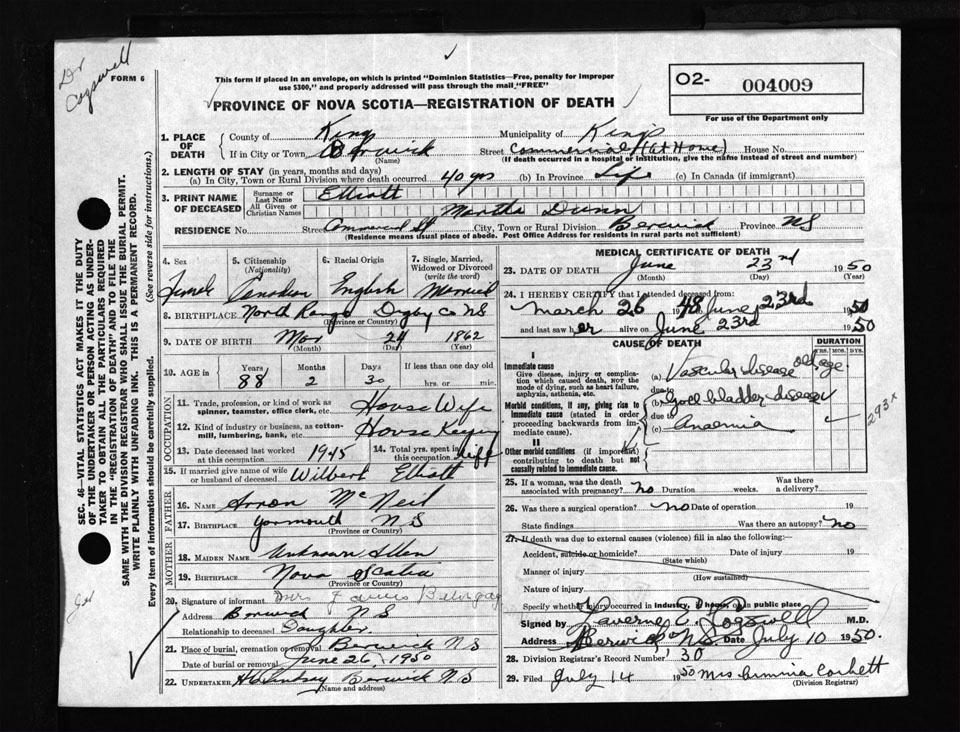 Dr Cogswell
FORM 6
This form if placed in an envelope, on which is printed "Dominion Statistics—Free, penalty for improper
use $300," and properly addressed will pass through the mail "FREE"
PROVINCE OF NOVA SCOTIA—REGISTRATION OF DEATH
O2- 004009
For use of the Department only
SEC. 46—VITAL STATISTICS ACT MAKES IT THE DUTY
OF THE UNDERTAKER OR PERSON ACTING AS UNDER-
TAKER TO OBTAIN ALL THE PARTICULARS REQUIRED
IN THE "REGISTRATION OF DEATH" AND TO FILE THE
SAME WITH THE DIVISION REGISTRAR WHO SHALL ISSUE THE BURIAL PERMIT.
WRITE PLAINLY WITH UNFADING INK. THIS IS A PERMANENT RECORD.
Every item of information should be carefully supplied. (See reverse side for instructions.)
1. PLACE OF DEATH County of Kings Municipality of Kings
If in City or Town Berwick (Name) Street Commercial (At Home) House No.
(If death occurred in a hospital or institution, give the name instead of street and number)
2. LENGTH OF STAY (in years, months and days)
(a) In City, Town or Rural Division where death occurred 40 yrs (b) In Province Life (c) In Canada (if immigrant)
3. PRINT NAME OF DECEASED Surname or Last Name Elliott
All Given or Christian Names Martha Dunn
RESIDENCE No. Street Commercial St City, Town or Rural Division Berwick Province NS
(Residence means usual place of abode. Post Office Address for residents in rural parts not sufficient)
4. Sex 5. Citizenship (Nationality) 6. Racial Origin 7. Single, Married, Widowed or Divorced (write the word)
Female Canadian English Married
8. BIRTHPLACE North Range Digby Co NS
(Province or Country)
9. DATE OF BIRTH Mar 24 1862
(Month) (Day) (Year)
10. AGE in Years Months Days If less than one day old
88 2 30 hrs. or min.
OCCUPATION
11. Trade, profession, or kind of work as spinner, teamster, office clerk, etc. House Wife
12. Kind of industry or business, as cotton-mill, lumbering, bank, etc. House Keeping
13. Date deceased last worked at this occupation 1945 14. Total yrs. spent in this occupation Life
15. If married give name of wife or husband of deceased Wilbert Elliott
FATHER
16. Name Arron McNeil
17. Birthplace Yarmouth N S
(Province or Country)
MOTHER
18. Maiden Name Unknown Allen
19. Birthplace Nova Scotia
(Province or Country)
20. Signature of informant Mrs James
Address Berwick N S
Relationship to deceased Daughter
21. Place of burial, cremation or removal Berwick N S
Date of burial or removal June 26, 1950
22. Undertaker Berwick N.S
(Name and address)
MEDICAL CERTIFICATE OF DEATH
23. DATE OF DEATH June 23rd 1950
(Month) (Day) (Year)
24. I HEREBY CERTIFY that I attended deceased from:
March 26 1948 June 23rd 1950
and last saw her alive on June 23rd 1950
CAUSE OF DEATH
DURATION
YRS. MOS. DYS.
I
Immediate cause
Give disease, injury or complication which caused death, NOT the mode of dying, such as heart failure, asphyxia, asthenia, etc.
(a) Vascular disease old age
due to
Morbid conditions, if any, giving rise to immediate cause (stated in order proceeding backwards from immediate cause).
(b) Gall bladder disease
due to
(c) Anaemia
293x
II
Other morbid conditions (if important) contributing to death but not causally related to immediate cause.
25. If a woman, was the death associated with pregnancy? No Duration weeks. Was there a delivery?
26. Was there a surgical operation? No Date of operation 19
State findings Was there an autopsy? No
27. If death was due to external causes (violence) fill in also the following:
Accident, suicide or homicide? Date of injury 19
(State which)
Manner of injury
(How sustained)
Nature of injury
Specify whether injury occurred in industry, in home, or in public place
Signed by Laverne C. Cogswell M.D.
Address Berwick N.S. Date July 10 1950.
28. Division Registrar's Record Number 30
29. Filed July 14 1950 Mrs Corbett
(Division Registrar)